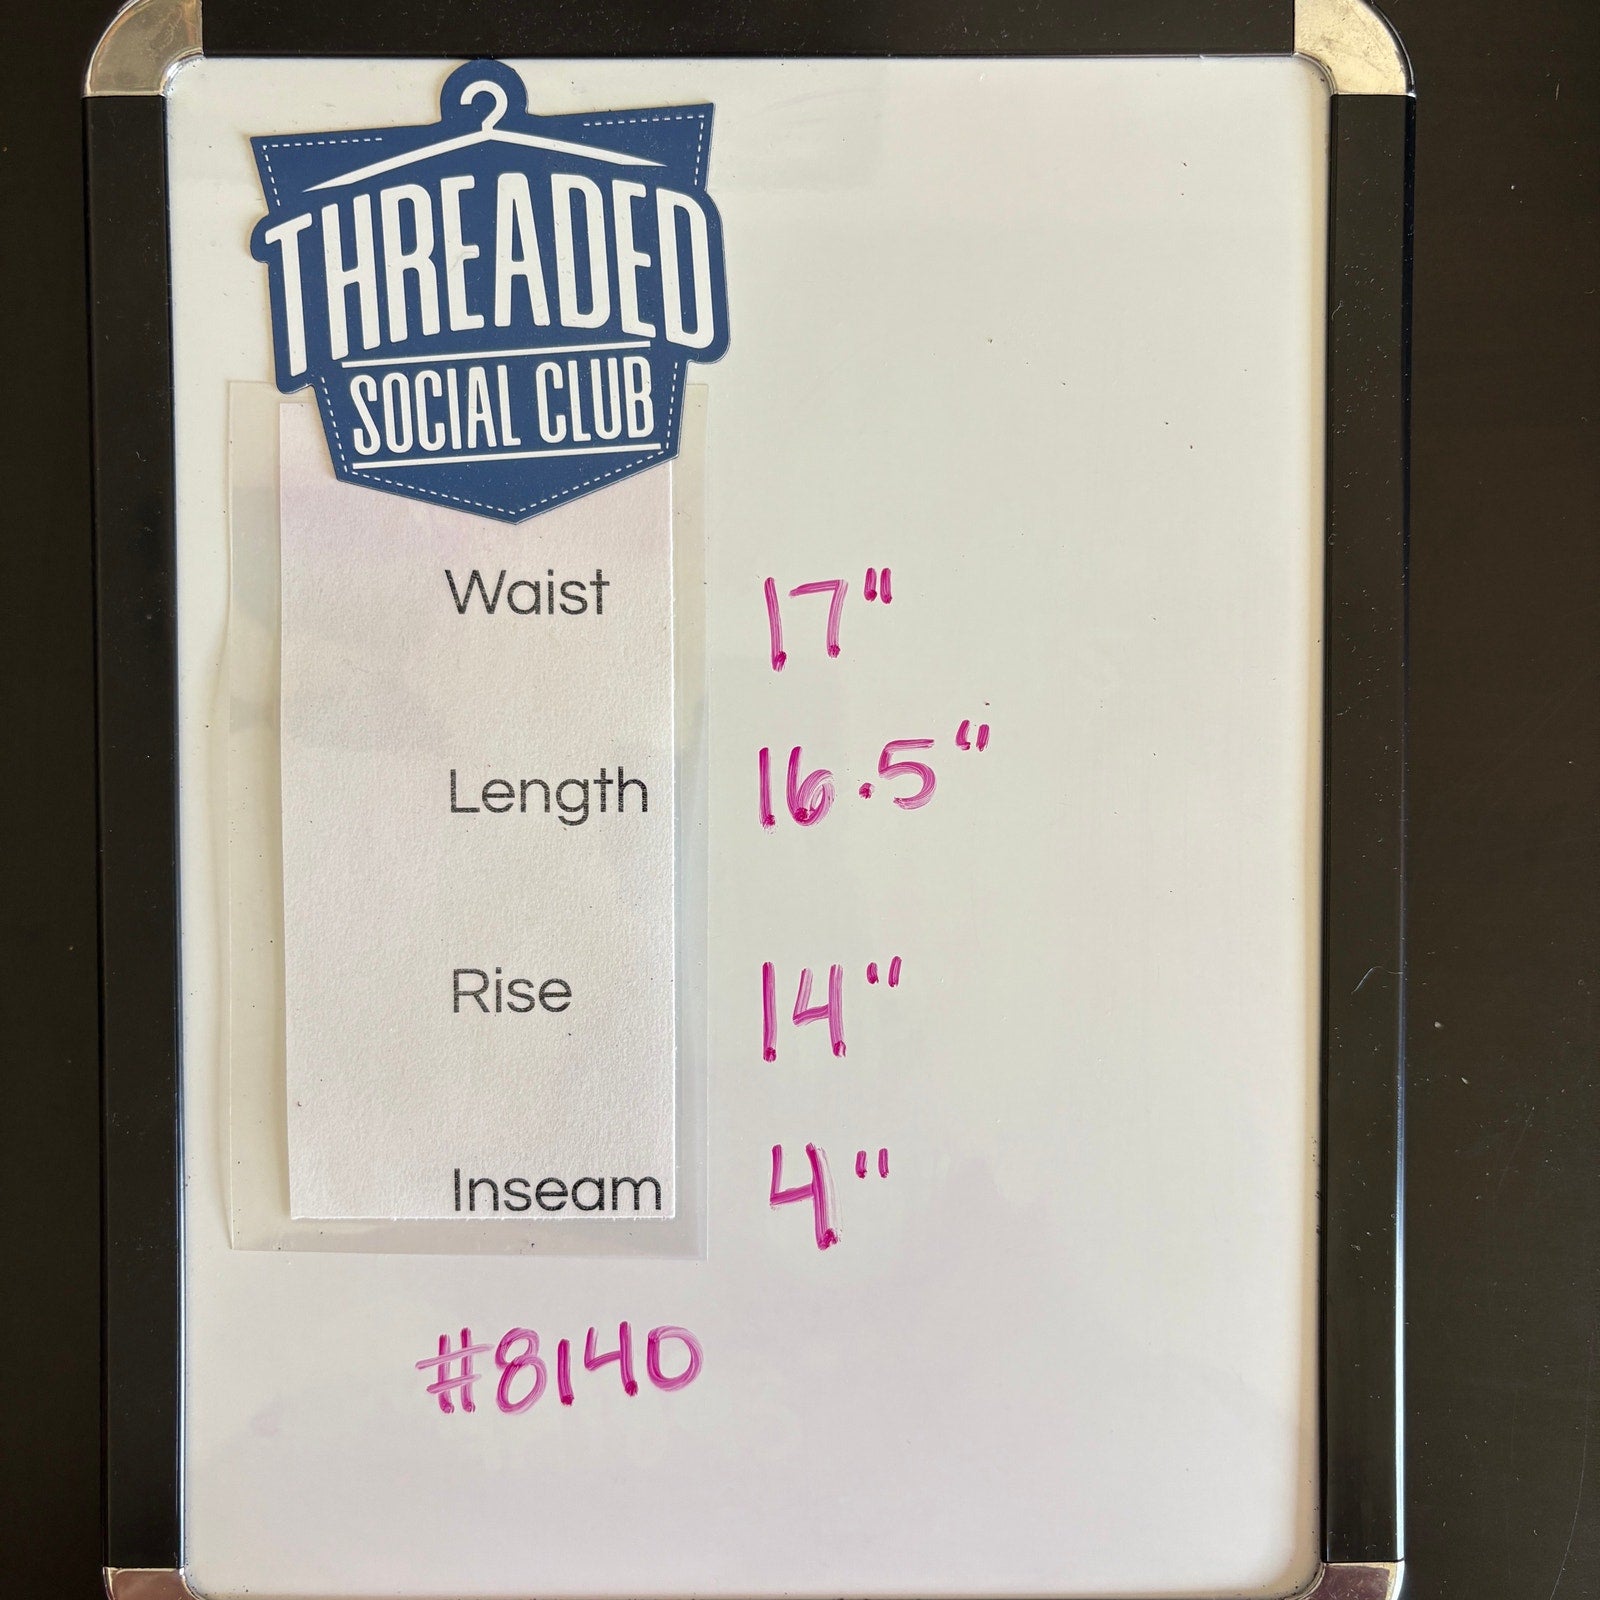 THREADED
SOCIAL CLUB
Waist 17"
Length 16.5"
Rise 14"
Inseam 4"
#8140